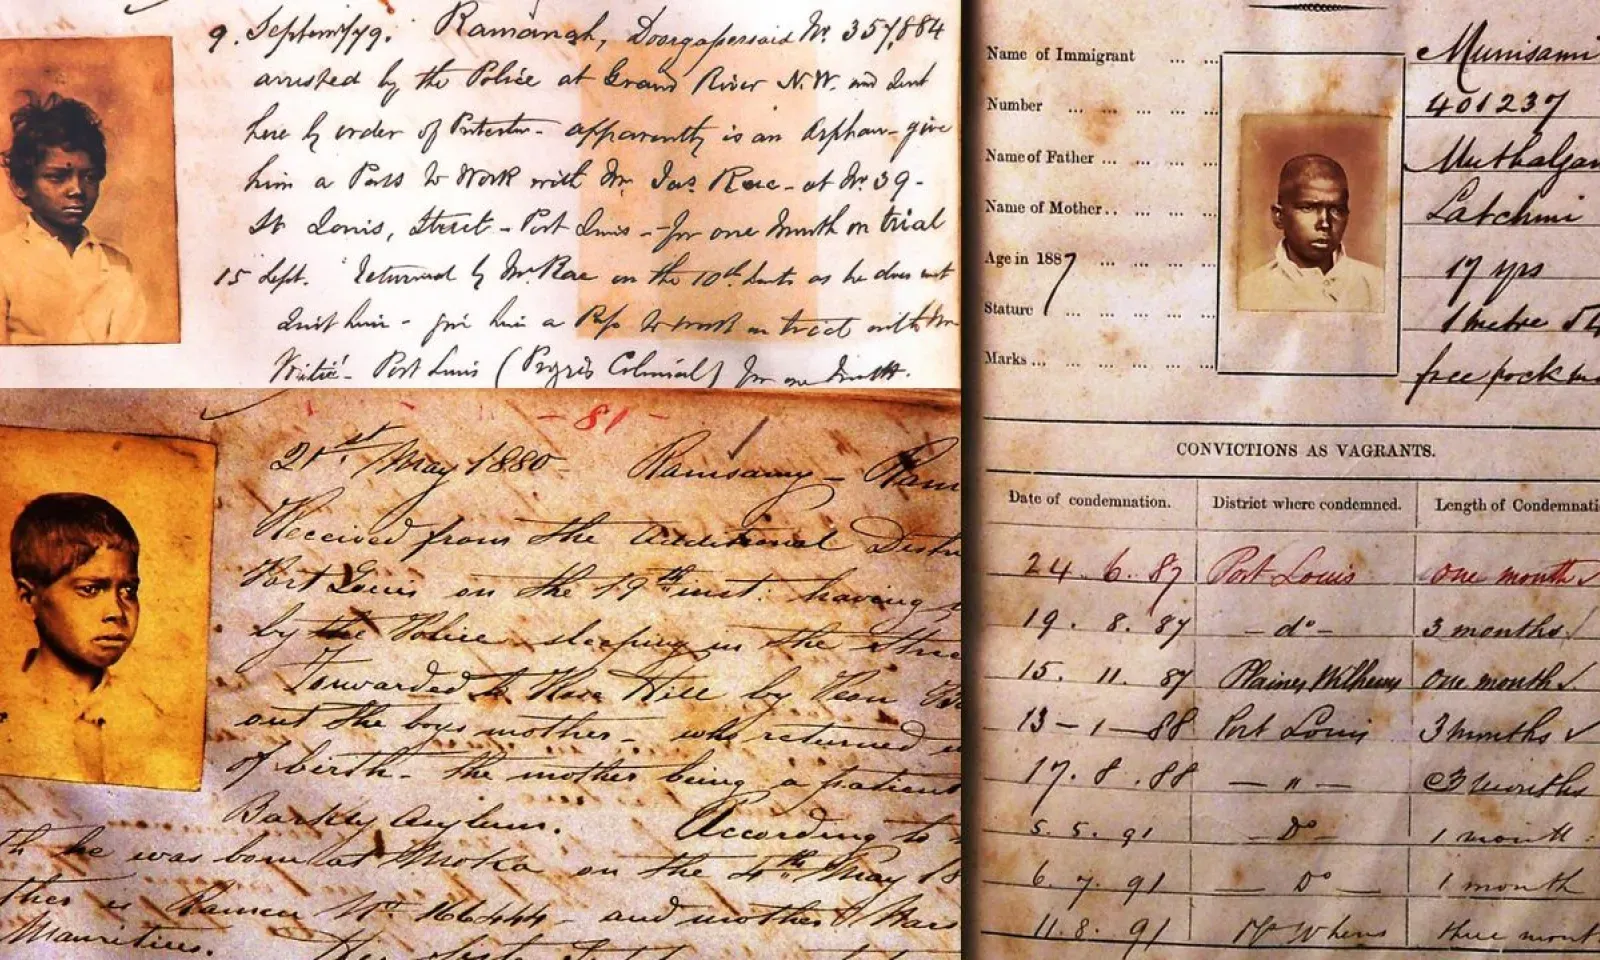 9. Septem/79. Ramangh, Doorgapersaid No. 357,884
arrested by the Police at Grand River N.W. and sent
here by order of Protector - apparently is an Orphan - give
him a Pass to Work with Mr Jas Rae - at No 39 -
St Louis, Street - Port Louis - for one month on trial
15 Sept. Returned by Mr Rae on the 10th Inst. as he does not
suit him - give him a Pass to work on trial with Mr
Port Louis ( Colonial) for one month.
- 81 -
21st May 1880 - Ramsamy - Ram
Received from the Additional Distr
Port Louis on the 19th inst: having
by the Police sleeping in the stree
Forwarded to Rose Hill by
out the boys mother - who returned
of birth - the mother being a patient
Barkly Asylum. According to
th he was born at Moka on the 4th May 18
ther is No 166444 - and mother
Mauritius.
Name of Immigrant ... ... Munisami
Number ... ... ... ... 401237
Name of Father ... ... ... Muthalgan
Name of Mother .. ... ... ... Latchmi
Age in 1887 ... ... ... ... 17 yrs
Stature ... ... ... ... 1 metre 54
Marks ... ... ... ... ... free pock
CONVICTIONS AS VAGRANTS.
Date of condemnation. District where condemned. Length of Condemnati
24. 6. 87 Port Louis one month ✓
19. 8. 87 - do - 3 months ✓
15. 11. 87 Plaines Wilhems one month ✓.
13 - 1 - 88 Port Louis 3 months ✓
17. 8. 88 — " — 3 months
5. 5. 91 — Do — 1 month
6. 7. 91 — Do — 1 month
11. 8. 91 Pl Whems three mont